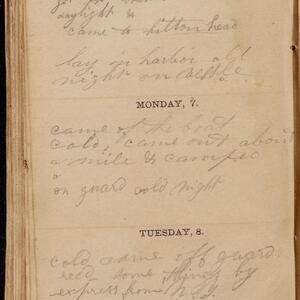 daylight &
came to hilton head
lay in harbor all
night on
MONDAY, 7.
came of the boat
cold, came out about
a mile & camped
on guard cold night
TUESDAY, 8.
cold came off guard
recd some things by
express from N.Y.